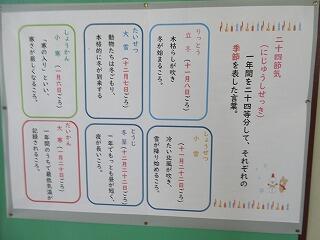 二十四節気
（にじゅうしせっき）
一年間を二十四等分して、それぞれの
季節を表した言葉。
りっとう
立冬（十一月八日ごろ）
木枯らしが吹き
冬が始まるころ。
たいせつ
大雪（十二月七日ごろ）
動物たちは冬ごもり、
本格的に冬が到来する
しょうかん
小寒（一月六日ごろ）
「寒の入り」といい、
寒さが厳しくなるころ。
しょうせつ
小雪
（十一月二十二日ごろ）
冷たい北風が吹き、
雪が降り始めるころ。
とうじ
冬至（十二月二十二日ごろ）
一年でもっとも昼が短く、
夜が長いころ。
だいかん
大寒（一月二十日ごろ）
一年間のうちで最低気温が
記録されるころ。